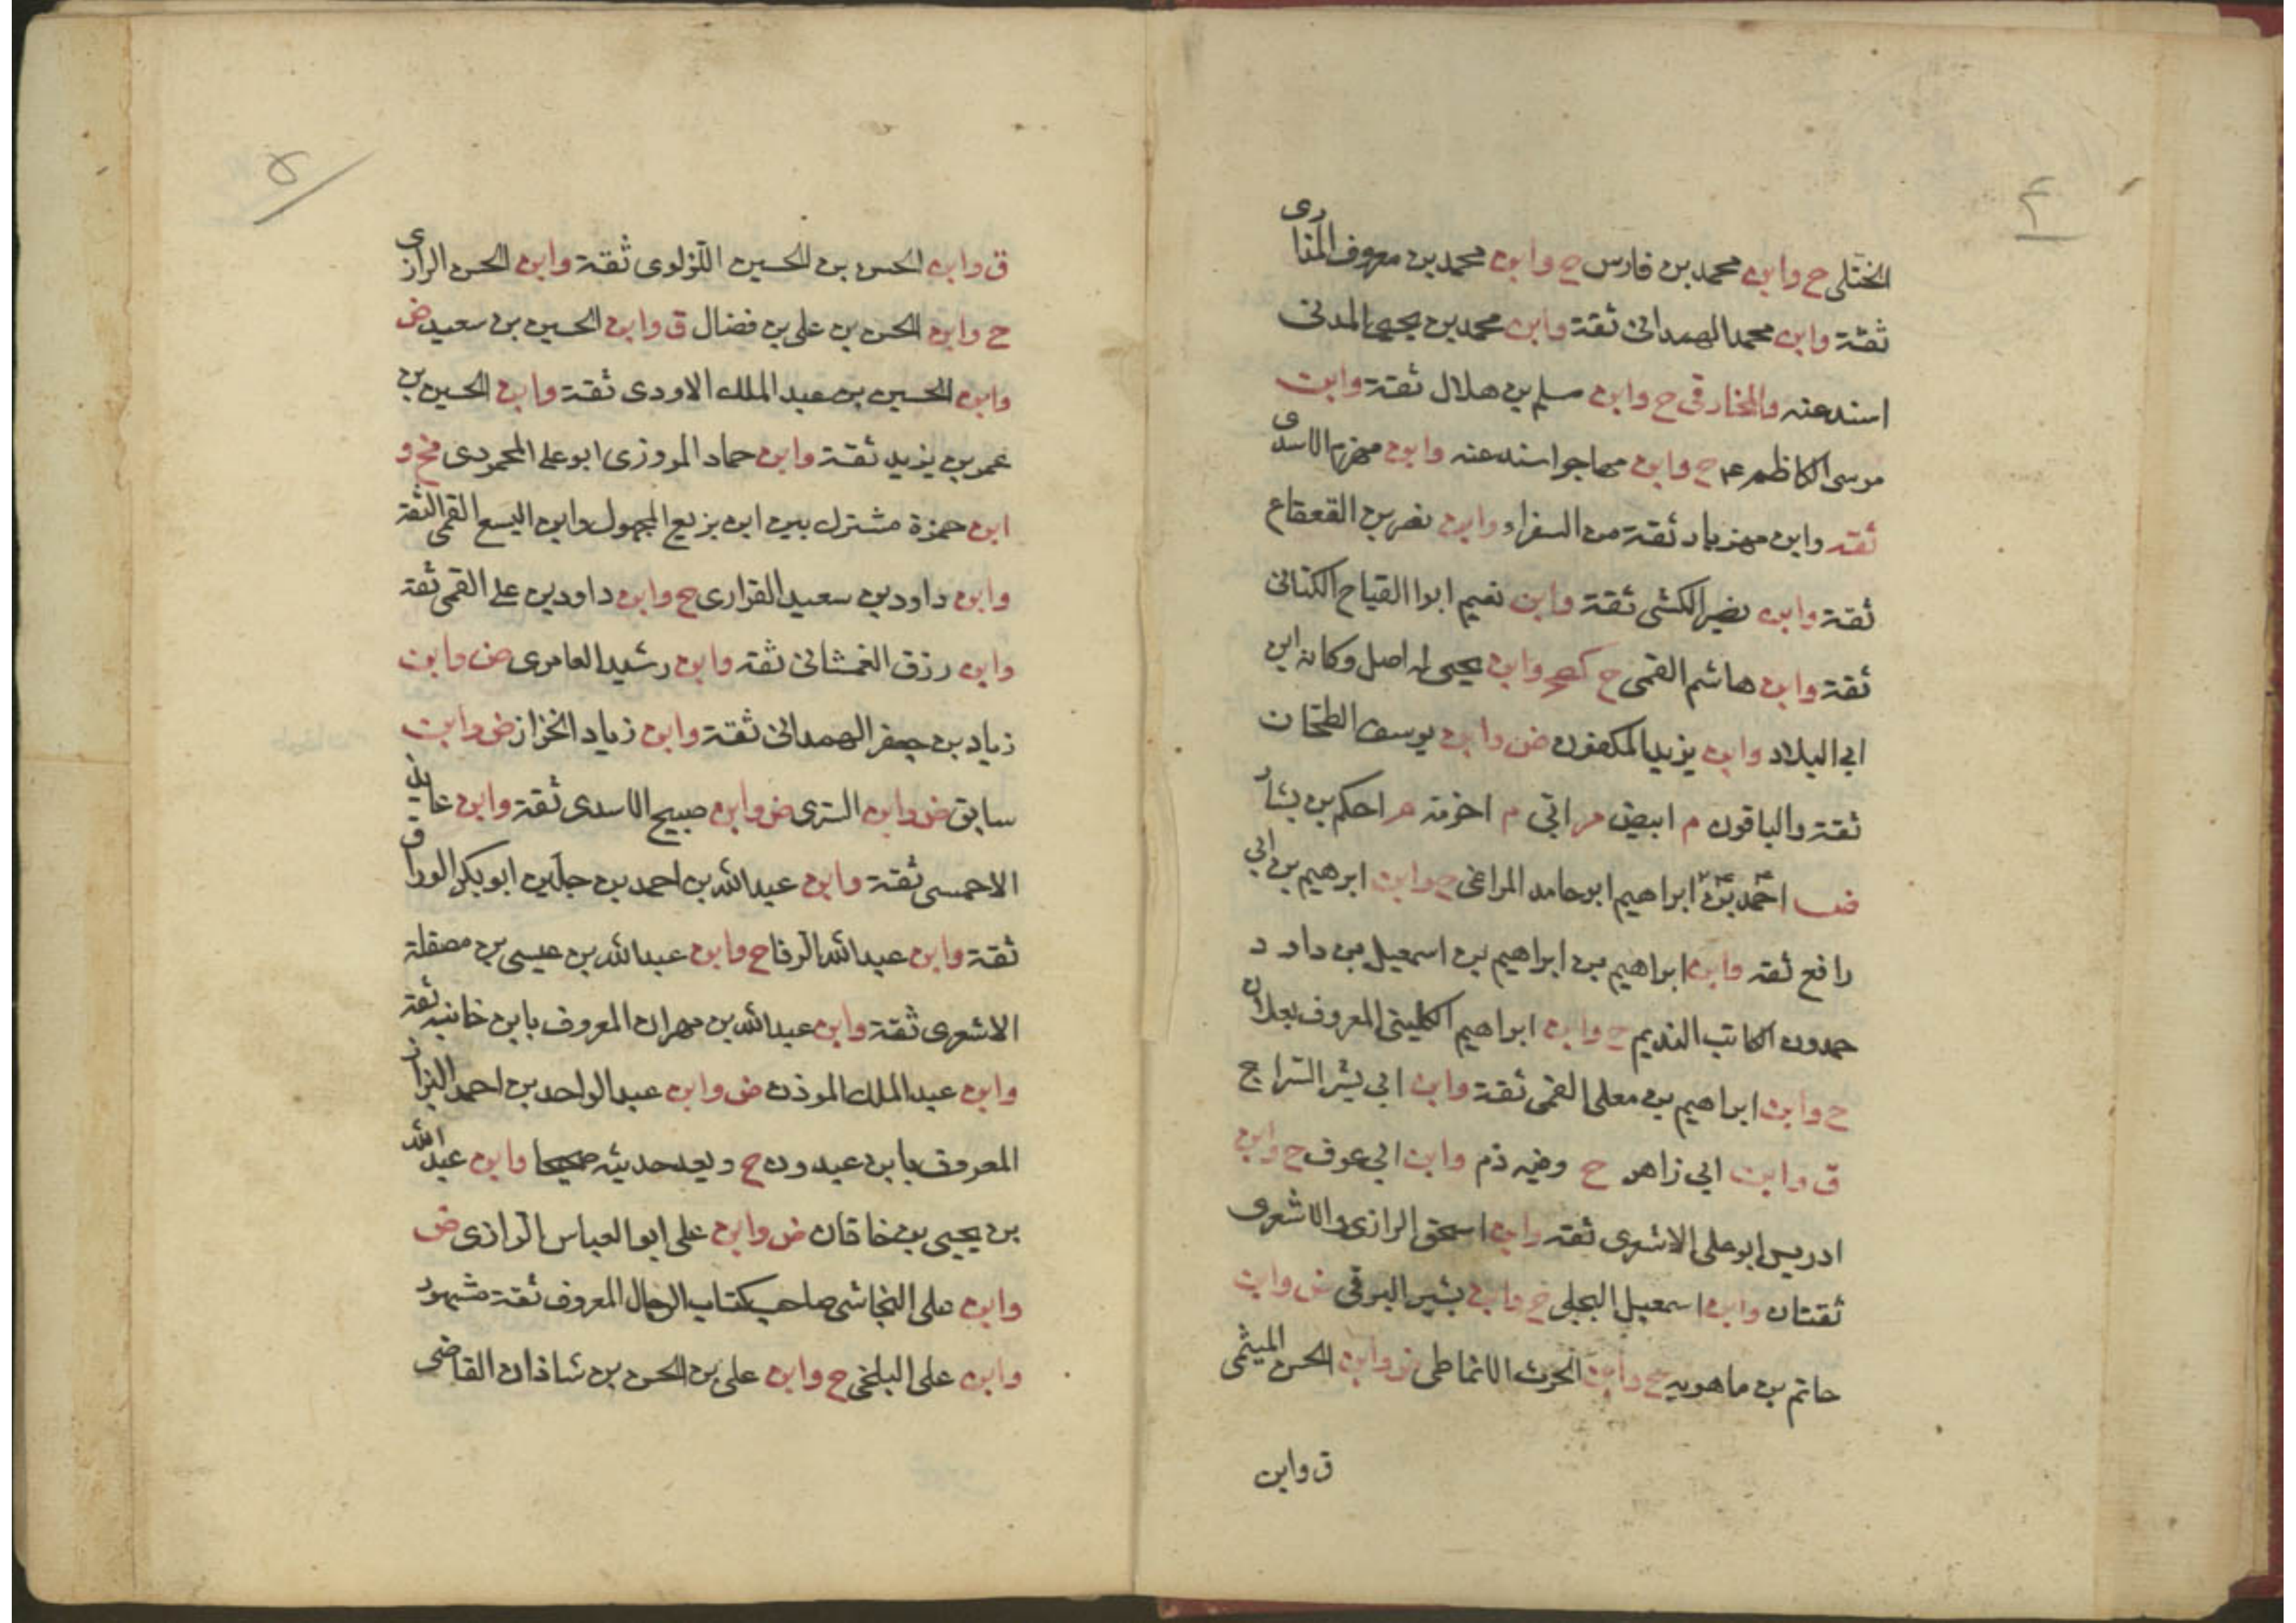 ۴
الختلى ح وابن محمد بن فارس ح وابن محمد بن معروف المنادى
ثقة وابن محمد الهمدانى ثقة وابن محمد بن يحيى المدنى
اسند عنه والمخارقى ح وابن مسلم بن هلال ثقة وابن
موسى الكاظم ع م ح وابن مهاجر اسند عنه وابن مهزم الاسدى
ثقة وابن مهزيار ثقة من السفراء وابن نصر بن القعقاع
ثقة وابن نصير الكشى ثقة وابن نعيم ابوا القياح الكنانى
ثقة وابن هاشم القمى ح كصح وابن يحيى له اصل وكان ابن
ابى البلاد وابن يزيد المكفوف ض وابن يوسف الطحان
ثقة والباقون م ابيض م اتى م اخزمة م احكم بن بشار
احمد بن ابراهيم ابو حامد المراغى ح وابن ابرهيم بن ابى
رافع ثقة وابن ابراهيم بن ابراهيم بن اسمعيل بن داود
حمدون الكاتب النديم ح وابن ابراهيم الكلينى المعروف بعلان
ح وابن ابراهيم بن معلى القمى ثقة وابن ابى بشر السراج
ق وابن ابى زاهر ح وفيه ذم وابن ابى عوف ح وابن
ادريس ابو على الاشعرى ثقة وابن اسحق الرازى والاشعرى
ثقتان وابن اسمعيل البجلى ح وابن بشير البرقى ض وابن
حاتم بن ماهويه ح وابن الحرث الانماطى ق وابن الحسن الميثمى
ق وابن
۵
ق وابن الحسن بن الحسين اللؤلوى ثقة وابن الحسن الرازى
ح وابن الحسن بن على بن فضال ق وابن الحسين بن سعيد ض
وابن الحسين بن عبد الملك الاودى ثقة وابن الحسين بن
عمر بن يزيد ثقة وابن حماد المروزى ابو على المحمودى مح و
ابن حمزة مشترك بين ابن بزيع المجهول وابن اليسع القمى الثقة
وابن داود بن سعيد الفزارى ح وابن داود بن على القمى ثقة
وابن رزق الغمشانى ثقة وابن رشيد العامرى ض وابن
زياد بن جعفر الهمدانى ثقة وابن زياد الخزاز ض وابن
سابق ض وابن السرى ض وابن صبيح الاسدى ثقة وابن عايذ
الاحمسى ثقة وابن عبد الله بن احمد بن جلين ابو بكر الوراق
ثقة وابن عبد الله الرفا ح وابن عبد الله بن عيسى بن مصقلة
الاشعرى ثقة وابن عبد الله بن مهران المعروف بابن خانبه ثقة
وابن عبد الملك الموذن ض وابن عبد الواحد بن احمد البزاز
المعروف بابن عبدون ح ويعد حديثه صحيحا وابن عبد الله
بن يحيى بن خاقان ض وابن على ابو العباس الرازى ض
وابن على النجاشى صاحب كتاب الرجال المعروف ثقة مشهور
وابن على البلخى ح وابن على بن الحسن بن شاذان القاضى